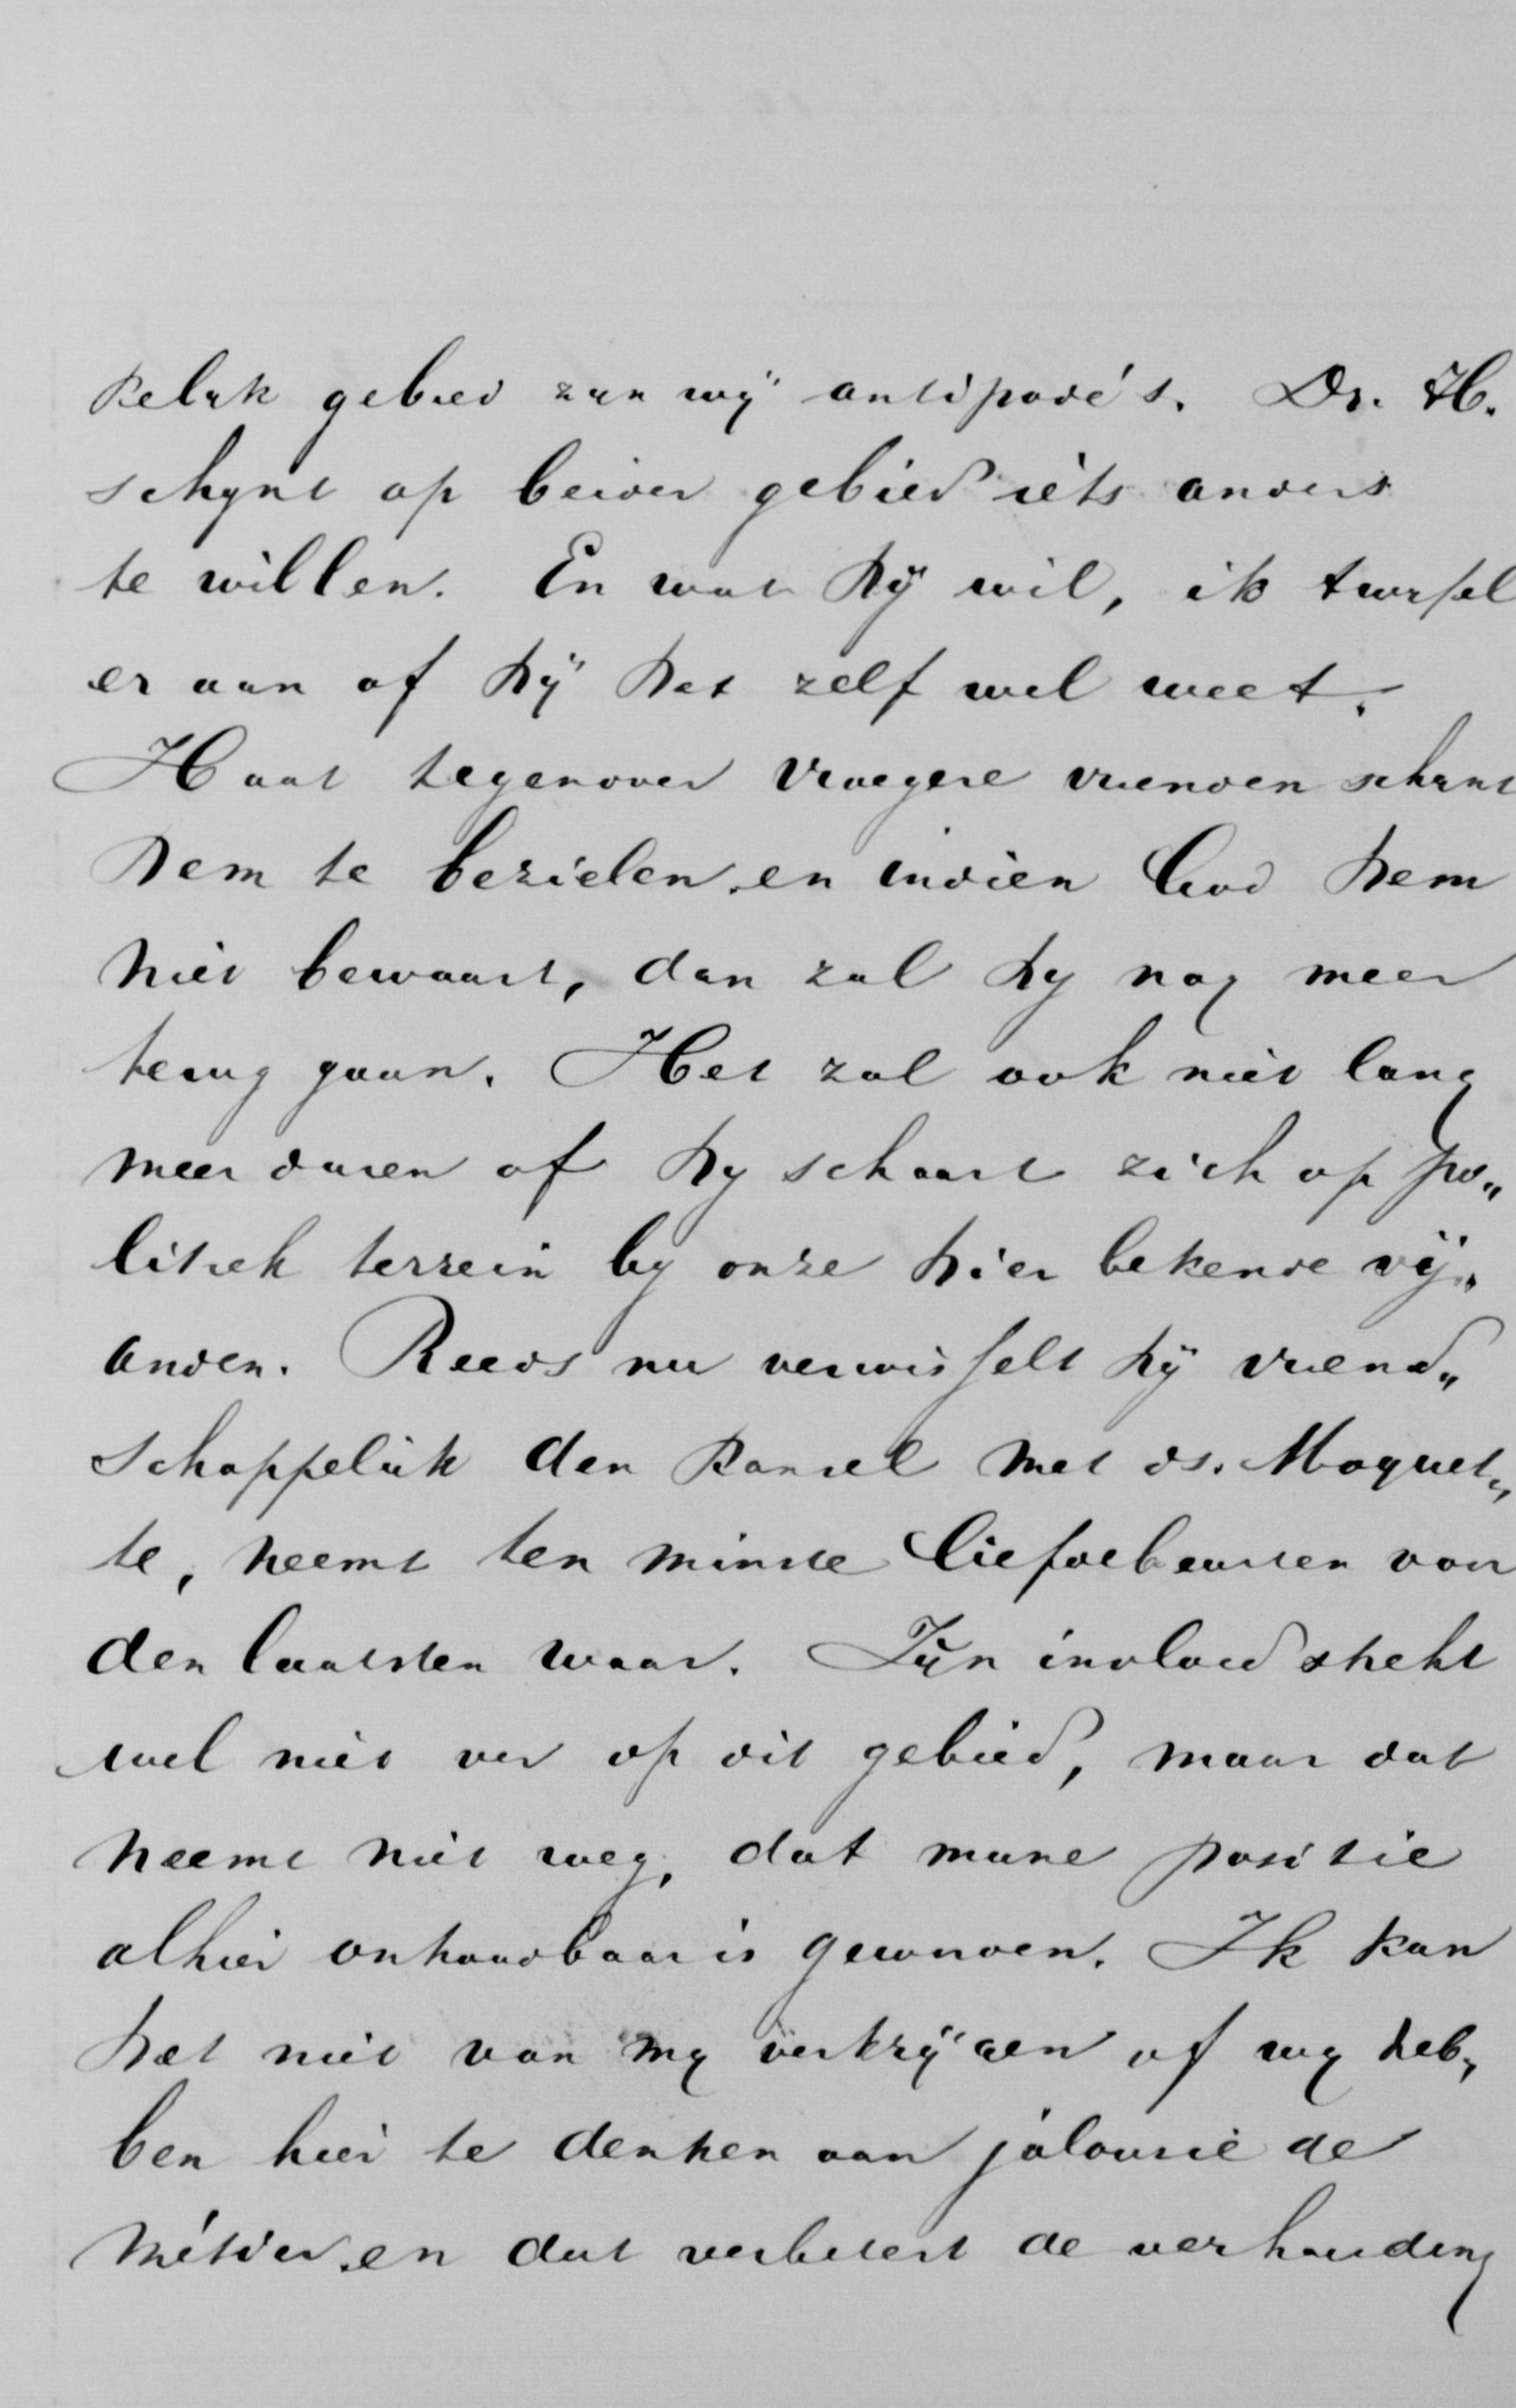 kelijk gebied zijn wij antipode's. Dr. H.
schijnt op beider gebied iets anders
te willen. En wat hij wil, ik twijfel
er aan of hij het zelf wel weet.
Haat tegenover vroegere vrienden schijnt
hem te bezielen en indien God hem
niet bewaart, dan zal hij nog meer
terug gaan. Het zal ook niet lang
meer duren of hij schaart zich op po„
litiek terrein bij onze hier bekende vij„
anden. Reeds nu verwisselt hij vriend„
schappelijk den kansel met ds. Moquet„
te, neemt ten minste liefdebeurten voor
den laatsten waar. Zijn invloed strekt
wel niet ver op dit gebied, maar dat
neemt niet weg, dat mijne positie
alhier onhoudbaar is geworden. Ik kan
het niet van mij verkrijgen of wij heb„
ben hier te denken aan jalousie de
métier en dat verbetert de verhouding